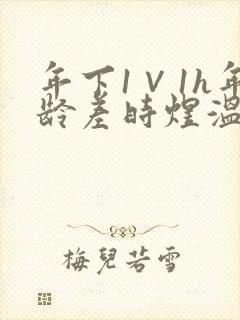 年下1V1h年
龄差时煜温
梅兒若雪